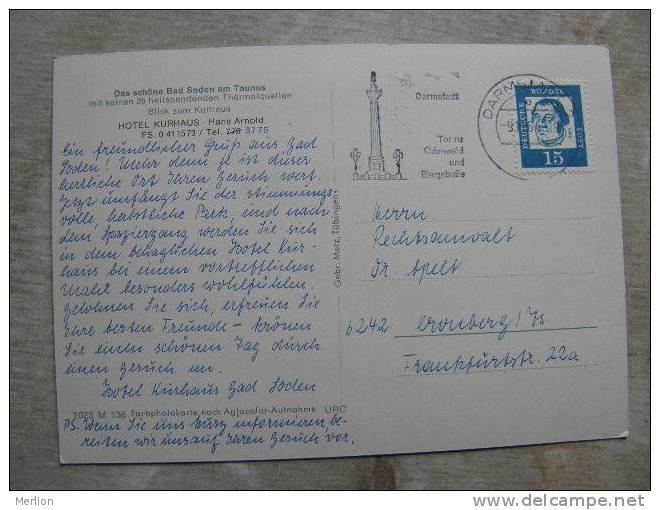 Das schöne Bad Soden am Taunus
mit seinen 26 heilspendenden Thermalquellen
Blick zum Kurhaus
HOTEL KURHAUS - Hans Arnold
FS. 0 411573 / Tel. 3775
Ein freundlicher Gruß aus Bad
Soden! Mehr denn je ist dieser
herrliche Ort Ihren Besuch wert.
Jetzt umfängt Sie der stimmungs-
volle, herbstliche Park, und nach
dem Spaziergang werden Sie sich
in dem behaglichen Hotel Kur-
haus bei einem vortrefflichen
Mahl besonders wohlfühlen.
Belohnen Sie sich, erfreuen Sie
Ihre besten Freunde - krönen
Sie einen schönen Tag durch
einen Besuch im
Hotel Kurhaus Bad Soden
1023 M 136 Farbphotokarte nach Agfacolor-Aufnahme URC
PS. Wenn Sie uns kurz informieren, be-
reiten wir uns auf Ihren Besuch vor.
Gebr. Metz, Tübingen
Darmstadt
Tor zu
Odenwald
und
Bergstraße
DARMSTA
DEUTSCHE
BUNDES
POST
15
Herrn
Rechtsanwalt
Dr. Apelt
6242 Kronberg/Ts
Frankfurtstr. 22a
Merlion
www.delcampe.net